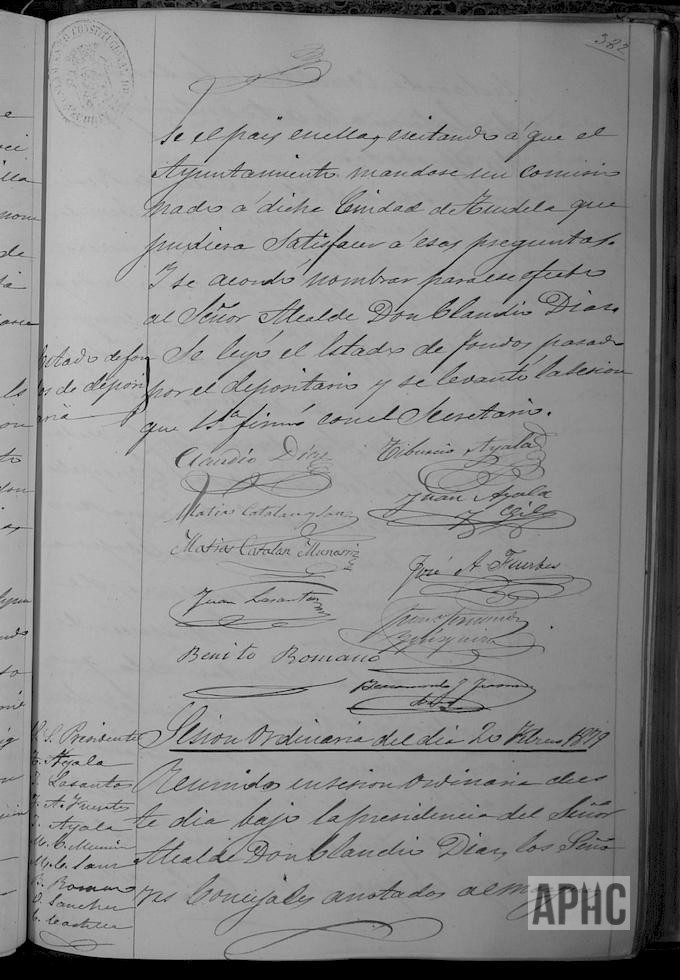 382
se el pais en ella, escitando á que el
Ayuntamiento mandase un comisio
nado á dicha Ciudad de Tudela que
pudiera satisfacer á esas preguntas.
Y se acordó nombrar para ese efecto
al Señor Alcalde Don Claudio Diaz.
Estado de fon
dos de deposi
taria
Se leyó el Estado de fondos pasado
por el depositario y se levantó la sesion
que S.Sª firmó con el Secretario.
Claudio Díaz
Tiburcio Ayala
Matias Catalan y Sanz
Juan Ayala
Gil
Matias Catalan Munarriz
José A. Fuertes
Juan Lasanta
Benito Romano
Sesion Ordinaria del dia 2 Febrero 1879
S. Presidente
T. Ayala
J. Lasanta
J. A. Fuertes
J. Ayala
M. C. Munar
M. C. Sanz
B. Romano
Sanchez
Reunido en sesion Ordinaria de es
te dia bajo la presidencia del Señor
Alcalde Don Claudio Diaz, los Seño
res Concejales anotados al margen
APHC